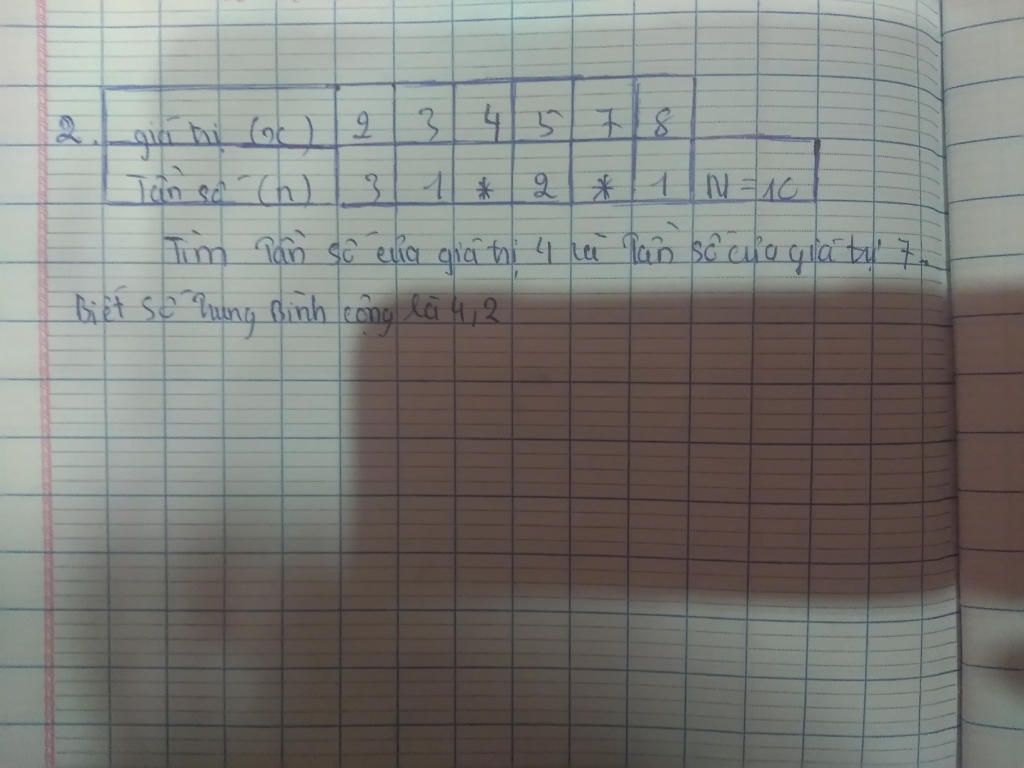 2. giá trị (x) 2 3 4 5 7 8
Tần số (n) 3 1 * 2 * 1 N = 10
Tìm Tần số của giá trị 4 và Tần số của giá trị 7.
Biết số Trung Bình cộng là 4,2